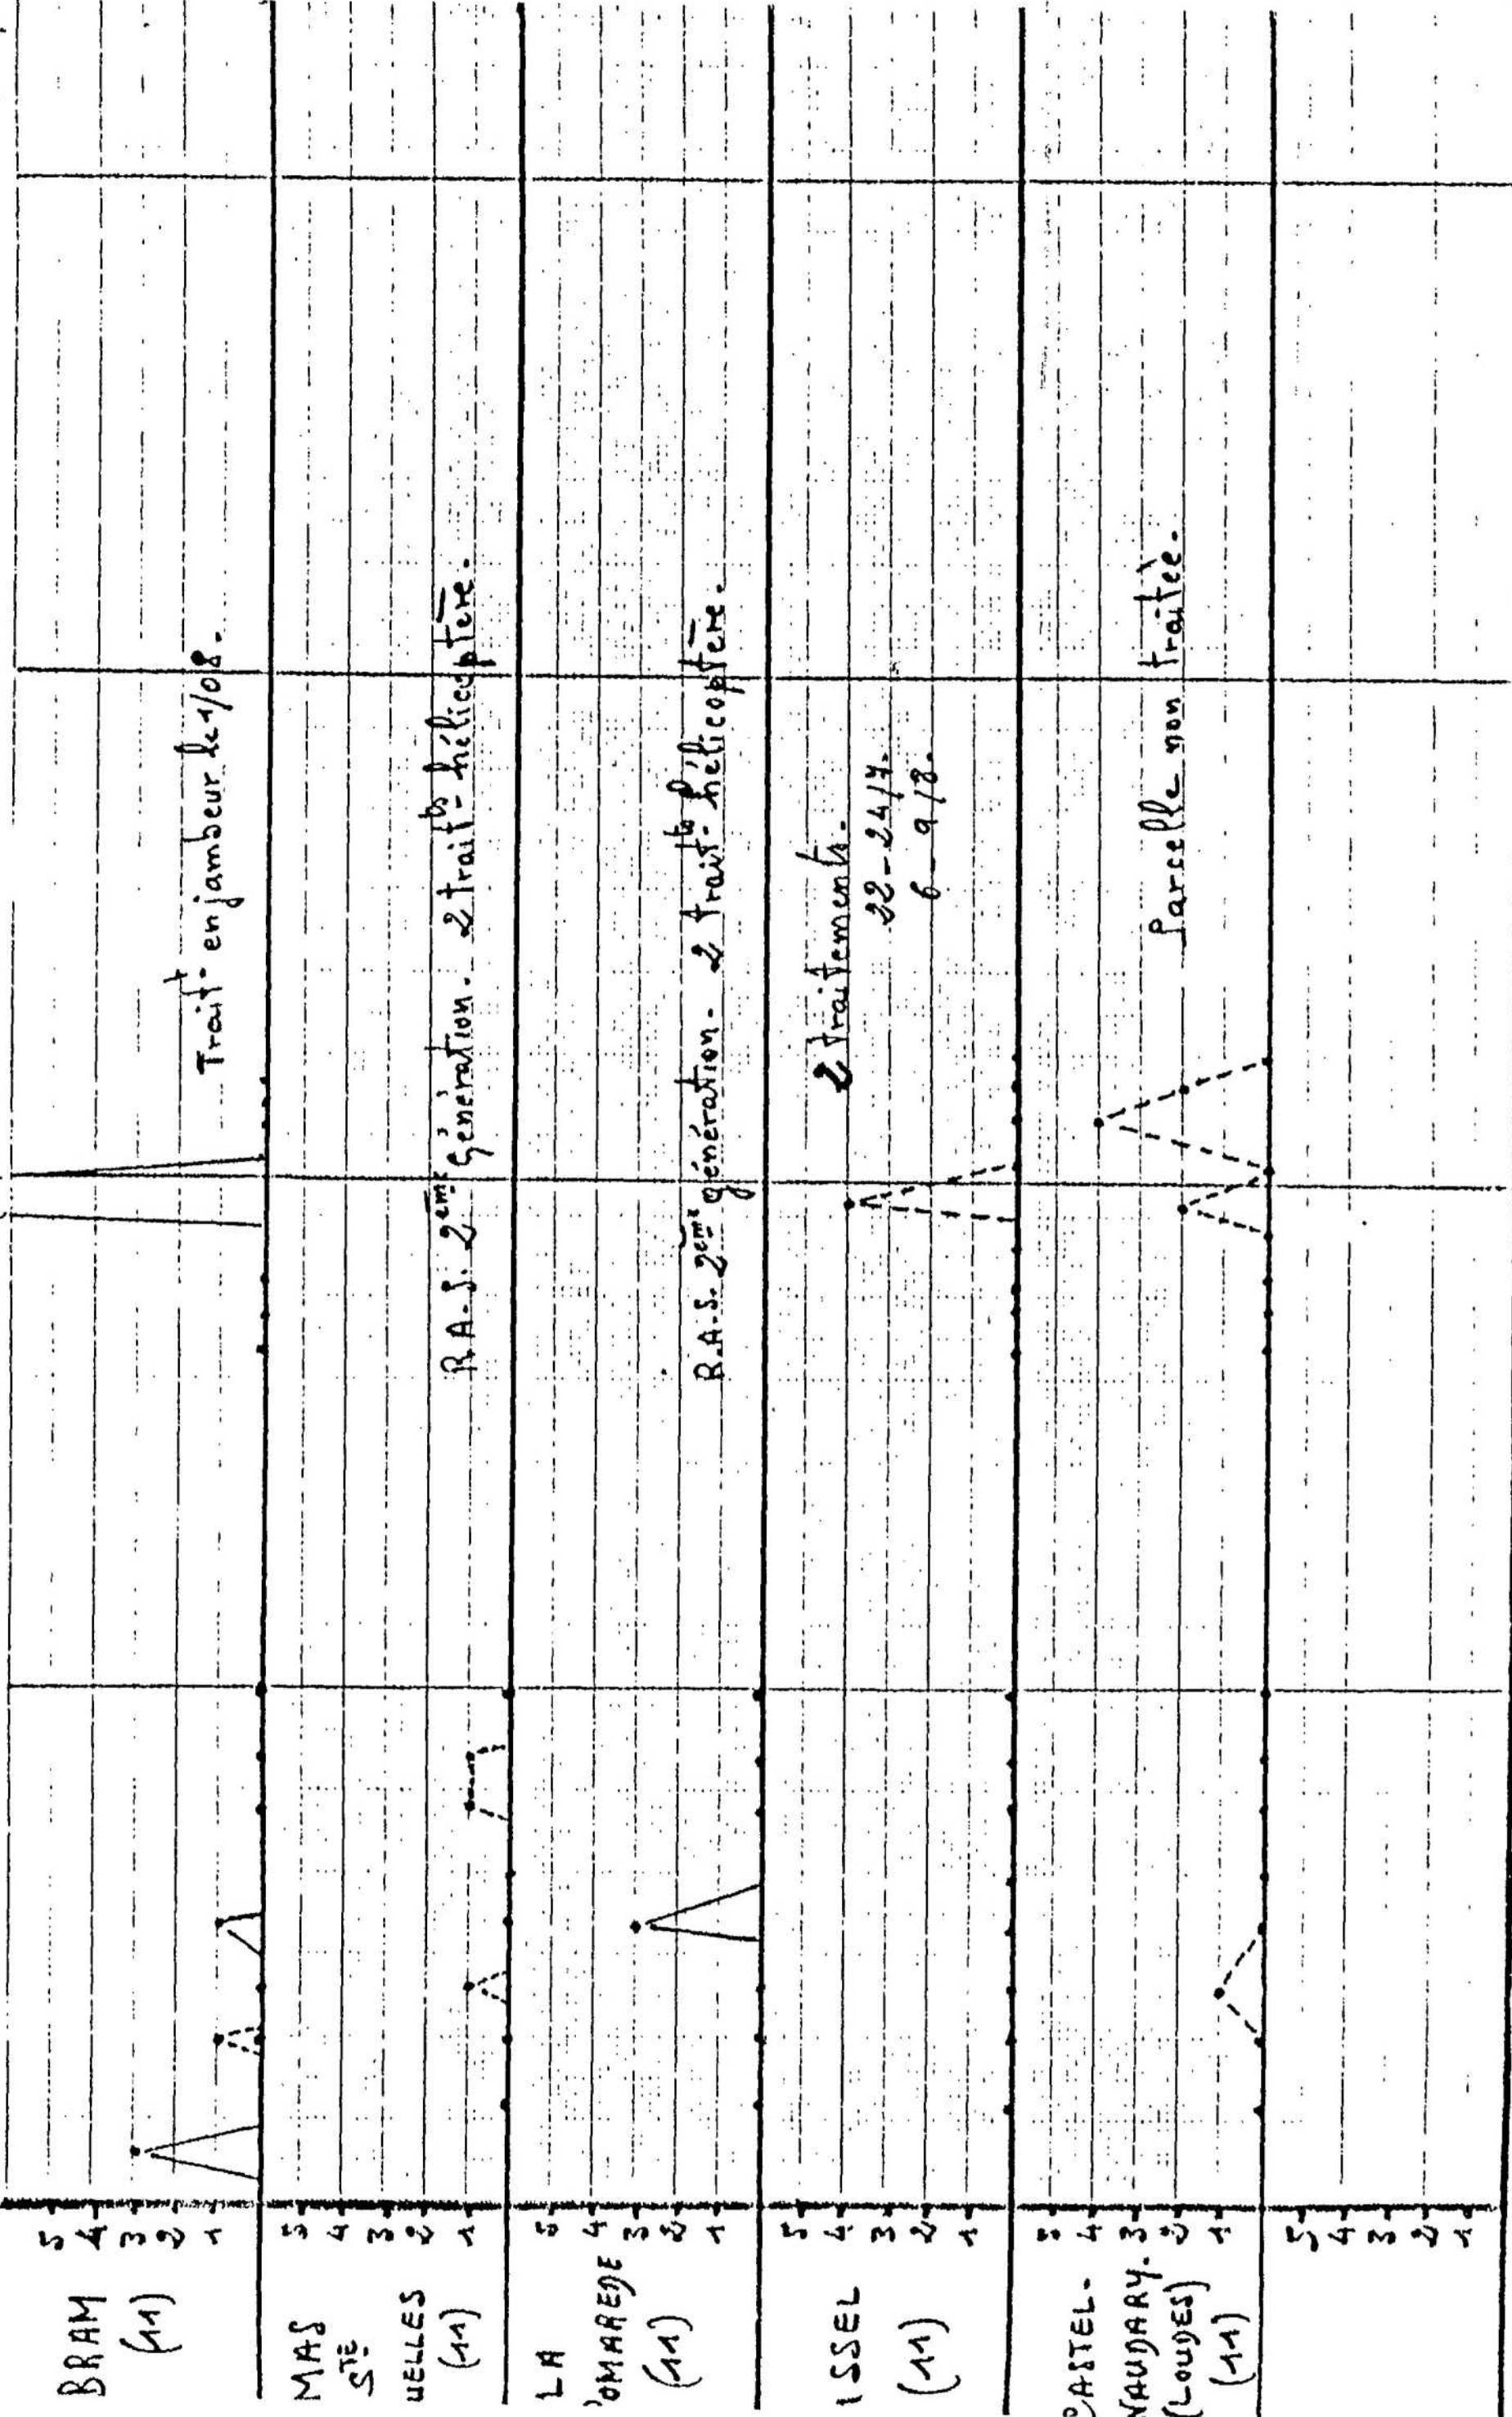 BRAM
(11)
5
4
3
2
1
Trait^t enjambeur le 1/08.
MAS
STE
UELLES
(11)
5
4
3
2
1
R.A.S. 2ème génération. 2 trait^ts hélicoptère.
LA
OMAREDE
(11)
5
4
3
2
1
R.A.S. 2ème génération. 2 trait^ts hélicoptère.
ISSEL
(11)
5
4
3
2
1
2 traitements.
22-24/7.
6-9/8.
CASTEL-
NAUDARY.
(LOUDES)
(11)
5
4
3
2
1
Parcelle non traitée.
5
4
3
2
1